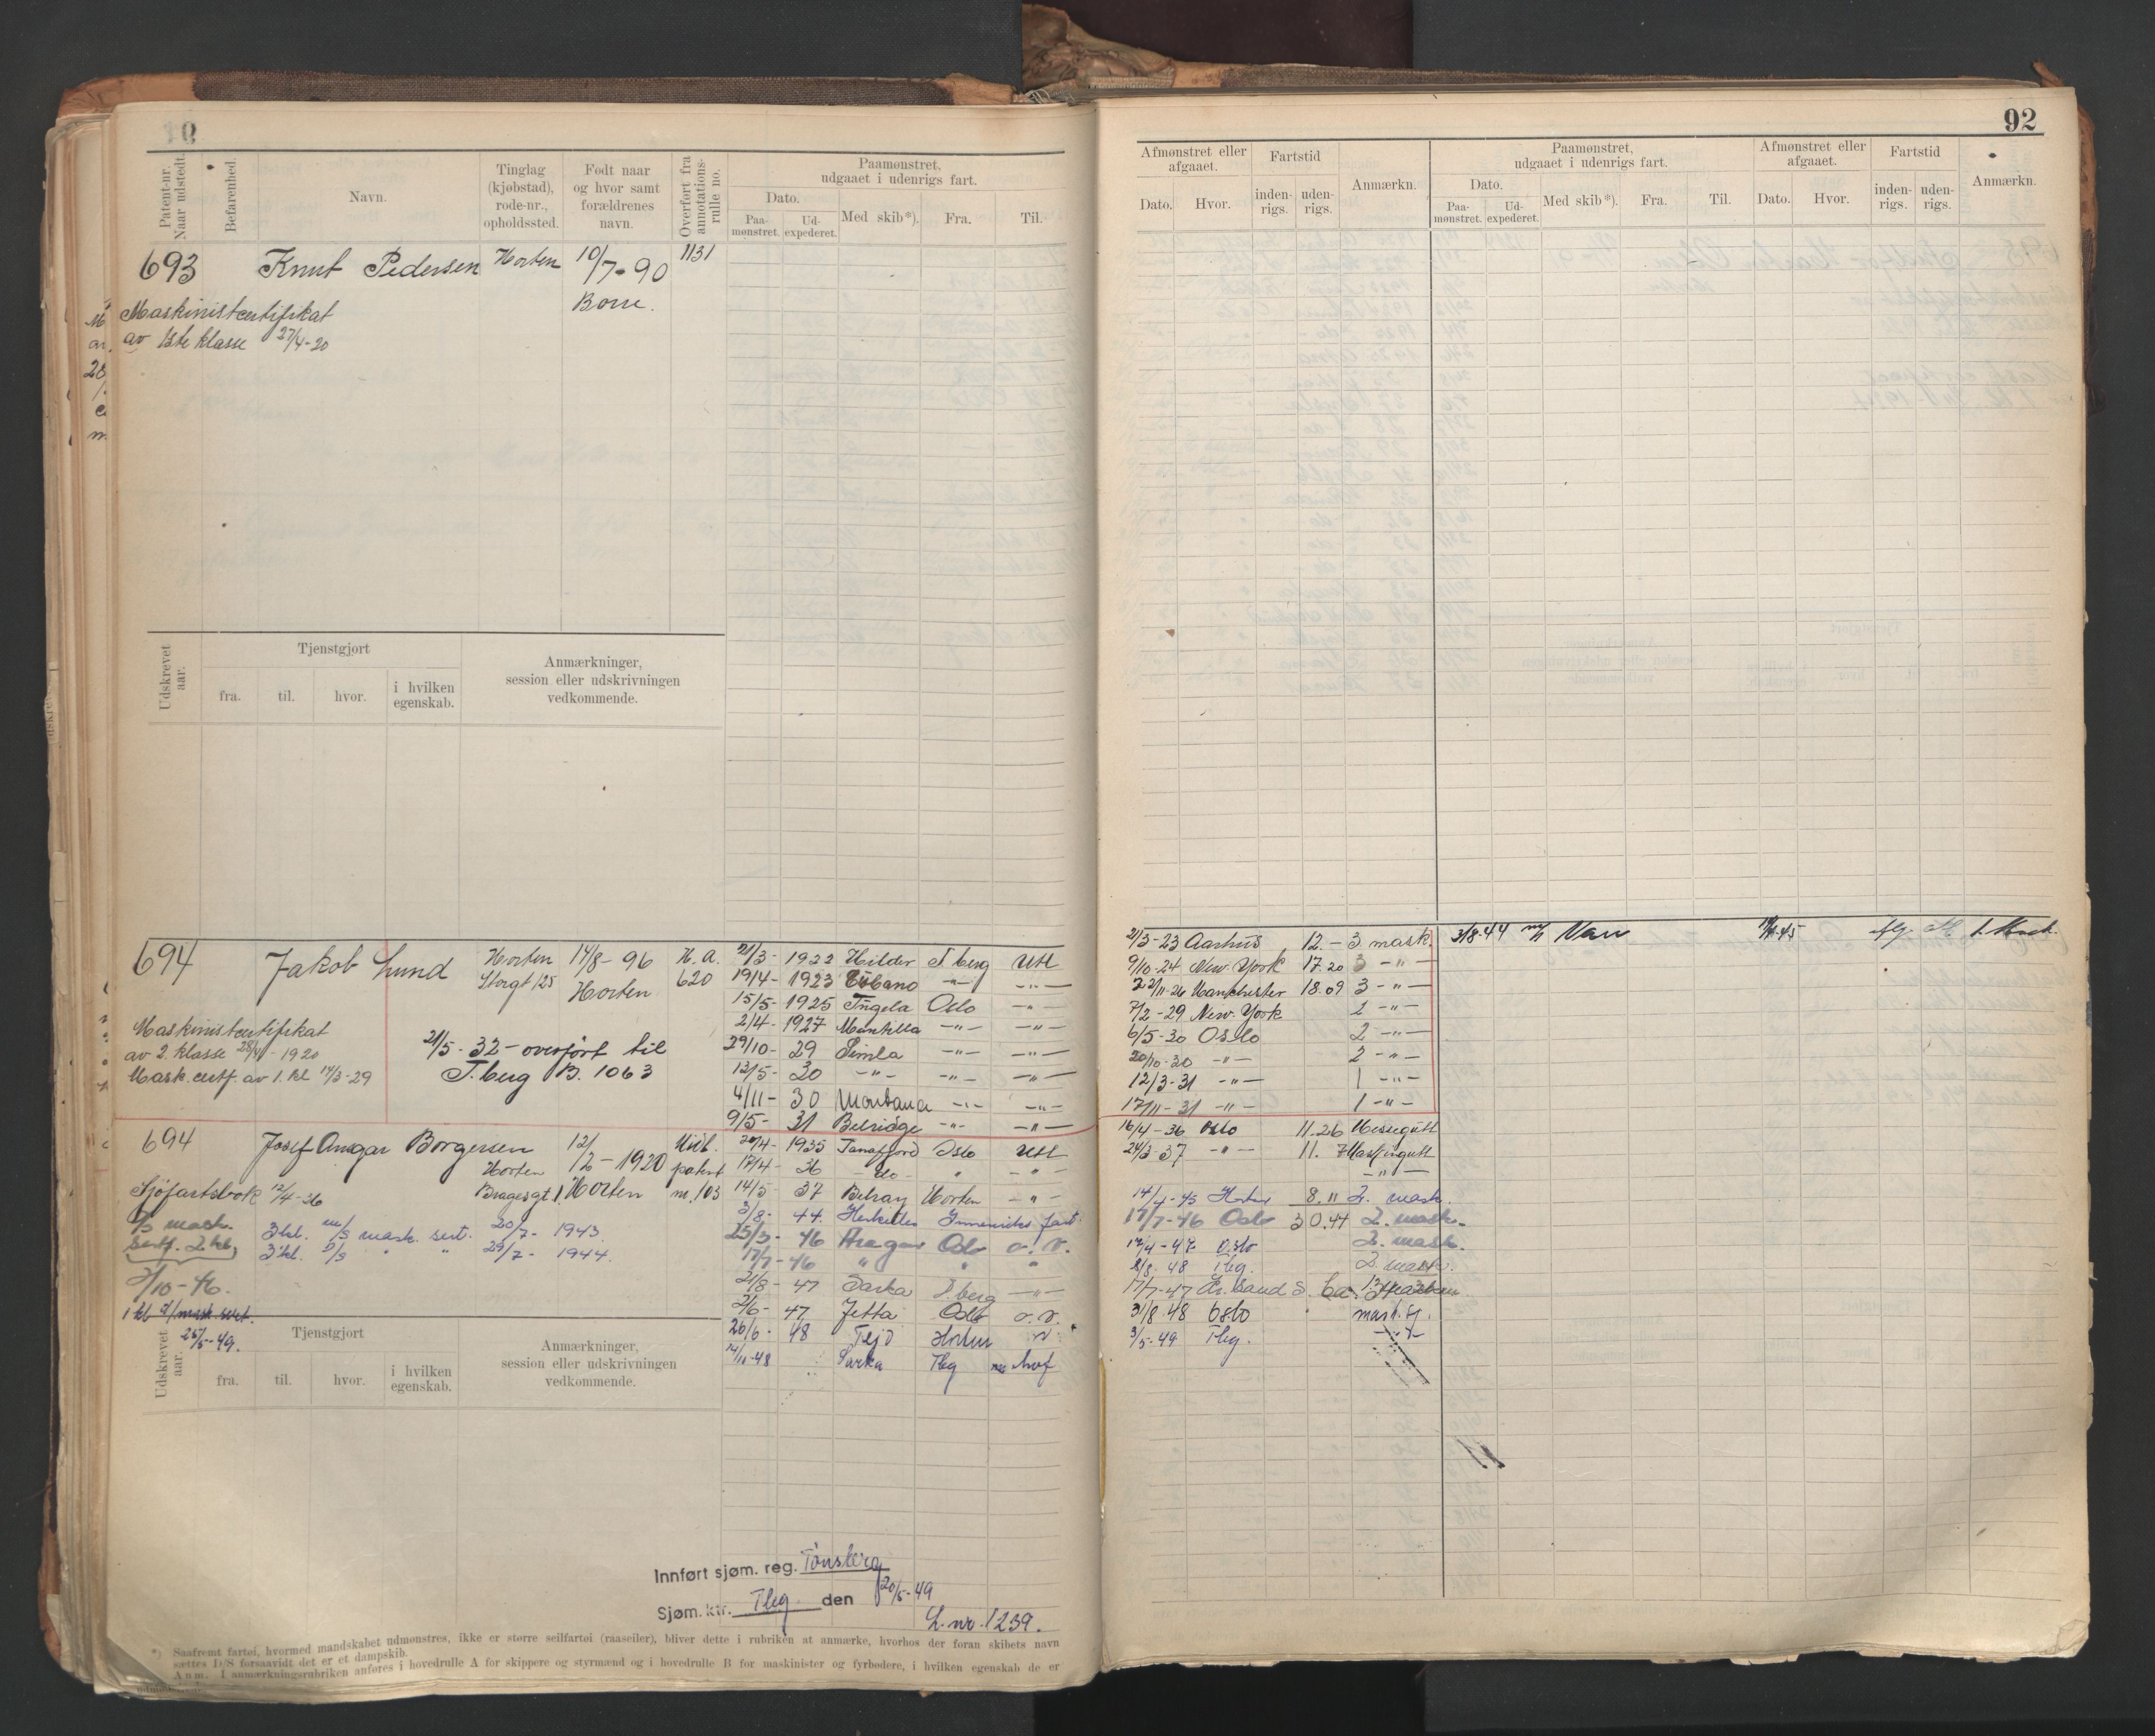 92
Patent-nr. Naar udstedt.
Befarenhed.
Navn.
Tinglag (kjøbstad), rode-nr., opholdssted.
Født naar og hvor samt forældrenes navn.
Overført fra annotations-rulle no.
Paamønstret, udgaaet i udenrigs fart.
Dato.
Paa-mønstret.
Ud-expederet.
Med skib*).
Fra.
Til.
693 Knut Pedersen Horten 10/7-90 1131
Borre.
Maskinistcertifikat
av 1ste klasse 27/4-20
Udskrevet aar.
Tjenstgjort
fra. til. hvor. i hvilken egenskab.
Anmærkninger, session eller udskrivningen vedkommende.
694 Jakob Lund Horten 14/8-96 H.A.
Storgt 125 Horten 620
Maskinistcertifikat
av 2. klasse 1920
Mask. certf. av 1. kl 14/3-29
21/5-32 - overført til
T.berg B. 1063
21/3- 1922 Hilder T.berg Utl
19/4- 1923 Cubano -"- -"-
15/5- 1925 Tugela Oslo -"-
2/4- 1927 Mantilla -"- -"-
29/10- 29 Simla -"- -"-
12/5- 30 -"- -"- -"-
4/11- 30 Montana -"- -"-
9/5- 31 Belridge -"- -"-
694 Josef Ansgar Borgersen 12/2-1920
Horten
Bragesgt 1. Horten
patent
nr. 103
Sjøfartsbok 12/4-36
D/S mask.
sertf. 2 kl,
3 kl. m/s mask. sert. 20/7- 1943.
3 kl. D/S " " 29/7- 1944.
2/10-46.
1 kl D/mask. sert.
25/5-49.
20/4- 1935 Tanafjord Oslo Utl
17/4- 36 -do- " -"-
14/5- 37 Belray Horten -"-
3/8- 44. Herkules Innenriks fart.
25/3- 46 Aragon Oslo
17/7-46 " " "
21/8- 47 Sarka T.berg -"-
2/6- 47 Jetta Oslo
26/6- 48 Tejo Horten
14/11-48 Sarka Tbg
Udskrevet aar.
Tjenstgjort
fra. til. hvor. i hvilken egenskab.
Anmærkninger, session eller udskrivningen vedkommende.
Innført sjøm. reg. Tønsberg
Sjøm. ktr. Tbg den 20/5-49
L.nr. 1239.
*) Saafremt fartøi, hvormed mandskabet udmønstres, ikke er større seilfartøi (raaseiler), bliver dette i rubriken at anmærke, hvorhos der foran skibets navn
sættes D/S forsaavidt det er et dampskib.
Anm. I anmærkningsrubriken anføres i hovedrulle A for skippere og styrmænd og i hovedrulle B for maskinister og fyrbødere, i hvilken egenskab de er
Afmønstret eller afgaaet.
Dato.
Hvor.
Fartstid
inden-rigs.
uden-rigs.
Anmærkn.
Paamønstret, udgaaet i udenrigs fart.
Dato.
Paa-mønstret.
Ud-expederet.
Med skib*).
Fra.
Til.
Afmønstret eller afgaaet.
Dato.
Hvor.
Fartstid
inden-rigs.
uden-rigs.
Anmærkn.
21/3-23 Aarhus 12.- 3. mask.
9/10-24 New. York 17.20 3 -"-
22/11-26 Manchester 18.09 3 -"-
7/2-29 New. York 2 -"-
6/5-30 Oslo 2 -"-
20/10-30 -"- 2 -"-
12/3-31 -"- 1 -"-
17/11-31 -"- 1 -"-
31/8-44
16/4-36 Oslo 11.26 Messegutt
24/3-37 -"- 11.
14/4-45 Horten 8.11 2. mask.
17/7-46 Oslo 30.44 2. mask.
Oslo 2. mask.
48 Tbg. 2. mask.
17/7-47 Kr. Sand S.
31/8-48 Oslo
3/5-49 Tbg. -"-